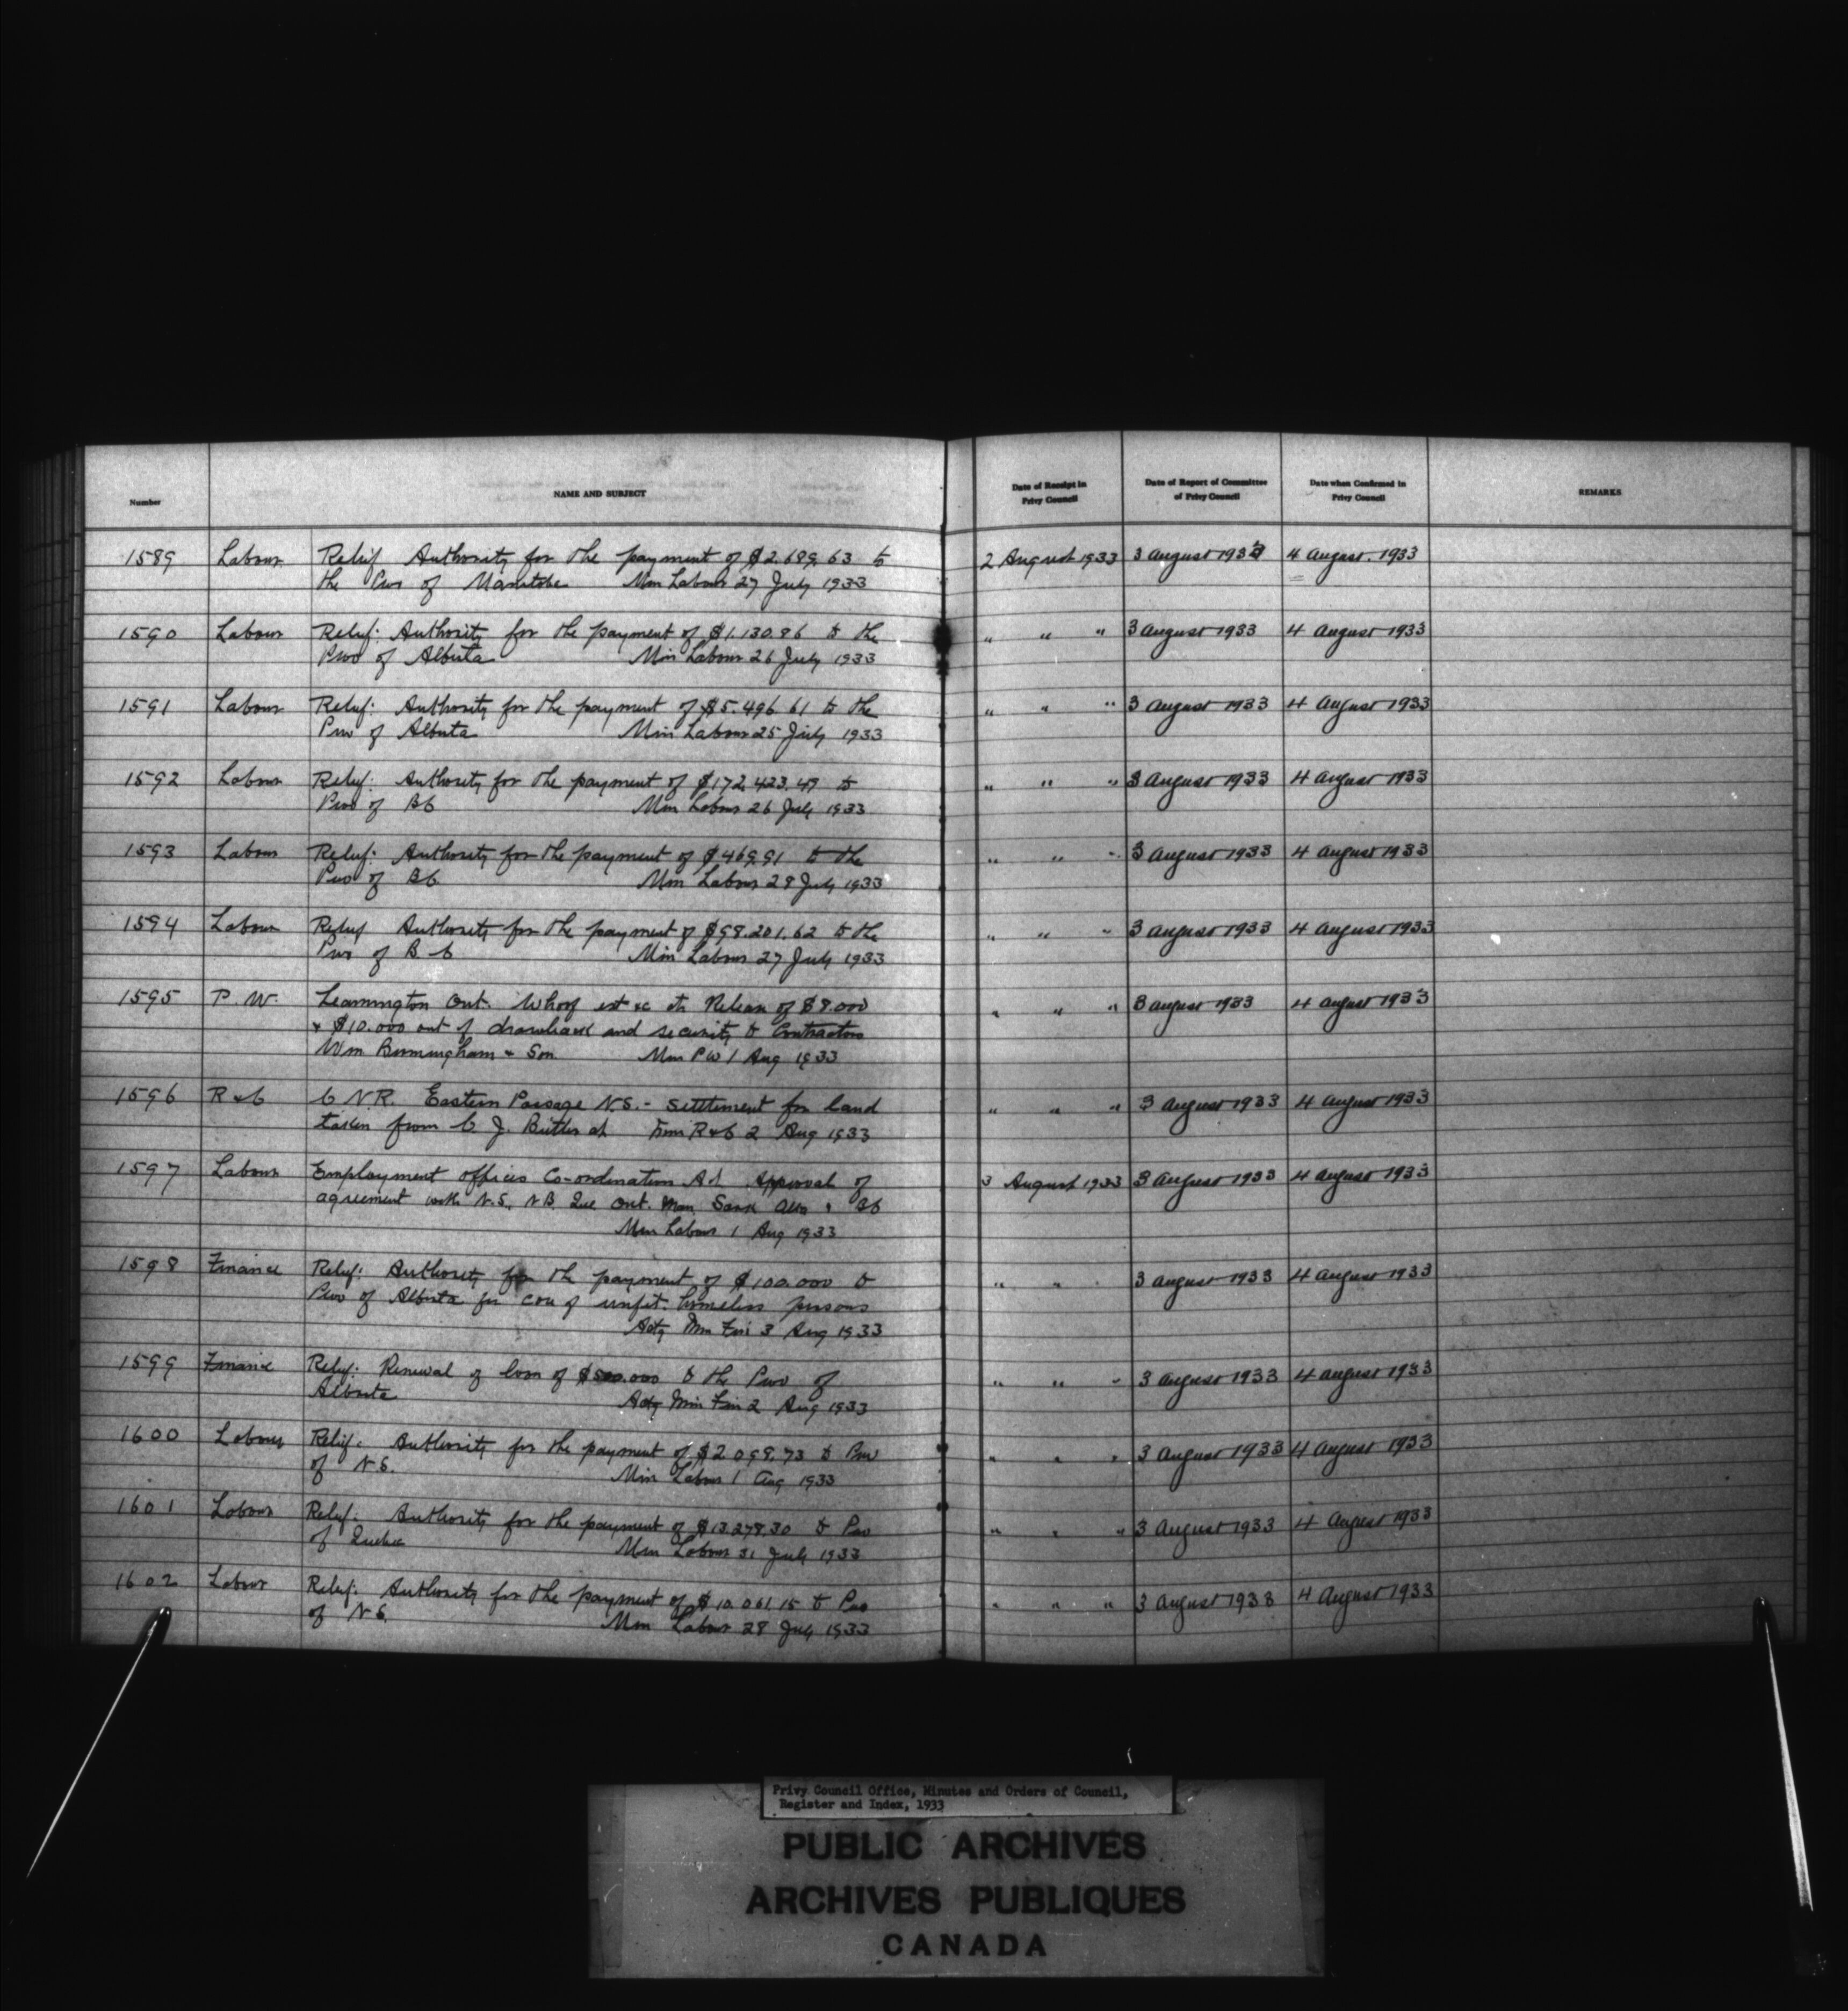 Number NAME AND SUBJECT Date of Receipt in Privy Council Date of Report of Committee of Privy Council Date when Confirmed in Privy Council REMARKS
1589 Labour Relief Authority for the payment of $2.689.63 to 2 August 1933 3 August 1933 4 August. 1933
the Prov of Manitoba Min Labour 27 July 1933
1590 Labour Relief: Authority for the payment of $1.130.86 to the " " " 3 August 1933 4 August 1933
Prov of Alberta Min Labour 26 July 1933
1591 Labour Relief: Authority for the payment of $5.496 61 to the " " " 3 August 1933 4 August 1933
Prov of Alberta Min Labour 25 July 1933
1592 Labour Relief: Authority for the payment of $172.423.47 to " " " 3 August 1933 4 August 1933
Prov of BC Min Labour 26 July 1933
1593 Labour Relief: Authority for the payment of $469.91 to the " " " 3 August 1933 4 August 1933
Prov of BC Min Labour 28 July 1933
1594 Labour Relief Authority for the payment of $98.201.62 to the " " " 3 August 1933 4 August 1933
Prov of B C Min Labour 27 July 1933
1595 P. W. Leamington Ont. Wharf ext &c at Release of $8.000 " " " 3 August 1933 4 August 1933
& $10.000 out of drawback and security to Contractors
Wm Birmingham & Son Min PW 1 Aug 1933
1596 R & C C N R. Eastern Passage N.S. - settlement for land " " " 3 August 1933 4 August 1933
taken from C J. Butler at Min R & C 2 Aug 1933
1597 Labour Employment offices Co-ordination Act Approval of 3 August 1933 3 August 1933 4 August 1933
agreement with N.S. N B Que Ont. Man Sask Alta & BC
Min Labour 1 Aug 1933
1598 Finance Relief: Authority for the payment of $100.000 to " " " 3 August 1933 4 August 1933
Prov of Alberta for care of unfit homeless persons
Actg Min Fin 3 Aug 1933
1599 Finance Relief: Renewal of loan of $500.000 to the Prov of " " " 3 August 1933 4 August 1933
Alberta Actg Min Fin 2 Aug 1933
1600 Labour Relief: Authority for the payment of $2.099.73 to Prov " " " 3 August 1933 4 August 1933
of N S. Min Labour 1 Aug 1933
1601 Labour Relief: Authority for the payment of $13.278.30 to Prov " " " 3 August 1933 4 August 1933
of Quebec Min Labour 31 July 1933
1602 Labour Relief: Authority for the payment of $10.061.15 to Prov " " " 3 August 1933 4 August 1933
of N S. Min Labour 28 July 1933
Privy Council Office, Minutes and Orders of Council,
Register and Index, 1933
PUBLIC ARCHIVES
ARCHIVES PUBLIQUES
CANADA